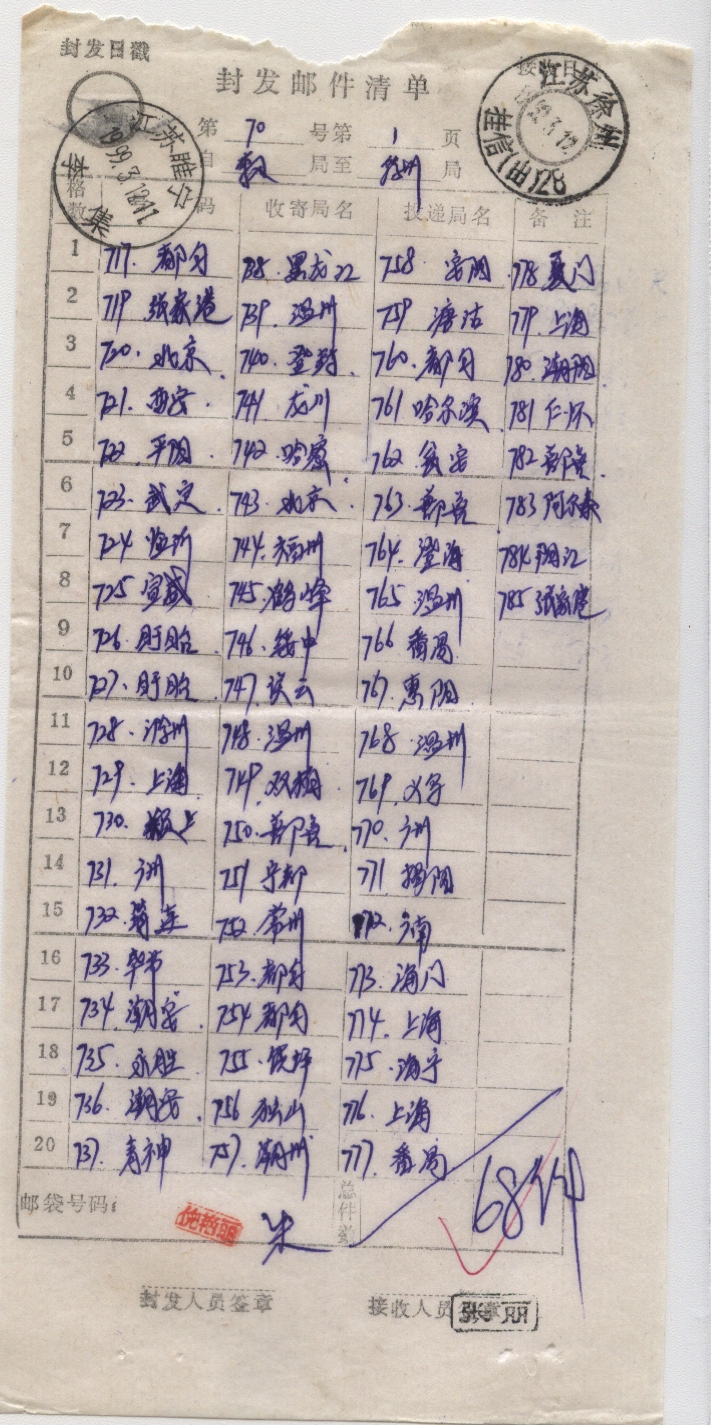 封发日戳
封发邮件清单
接收日
江苏睢宁
1999.3.12
李集
江苏徐州
1999.3.12
挂信(由)28
第 70 号第 1 页
自 局至 徐州 局
格数 码 收寄局名 投递局名 备注
1 717. 都匀 738. 黑龙江 758. 778 厦门
2 719 张家港 739. 温州 759 塘沽 779. 上海
3 720. 北京 740. 登封 760. 都匀 780. 潮阳
4 721. 西安 741 龙川 761 哈尔滨 781 仁怀
5 722. 平阴 742. 哈密 762. 782
6 723. 武定 743. 北京 763. 783 阿尔泰
7 724 临沂 744. 福州 764. 澄海 784 阳江
8 725 宣威 745. 鹤峰 765 温州 785 张家港
9 726. 盱眙 746. 绥中 766 番禺
10 727. 盱眙 747. 767. 惠阳
11 728. 滁州 748. 温州 768. 温州
12 729. 上海 749. 双柏 769.
13 730. 颍上 750. 770. 广州
14 731. 广州 751 宁都 771. 揭阳
15 732. 752. 常州 772.
16 733. 毕节 753. 都匀 773. 海门
17 734. 潮安 754 都匀 774. 上海
18 735. 永胜 755. 775. 海宁
19 736. 潮安 756 独山 776. 上海
20 737. 青神 757. 潮州 777. 番禺
邮袋号码: 朱 总件数 68件
封发人员签章 接收人员签章
张丽